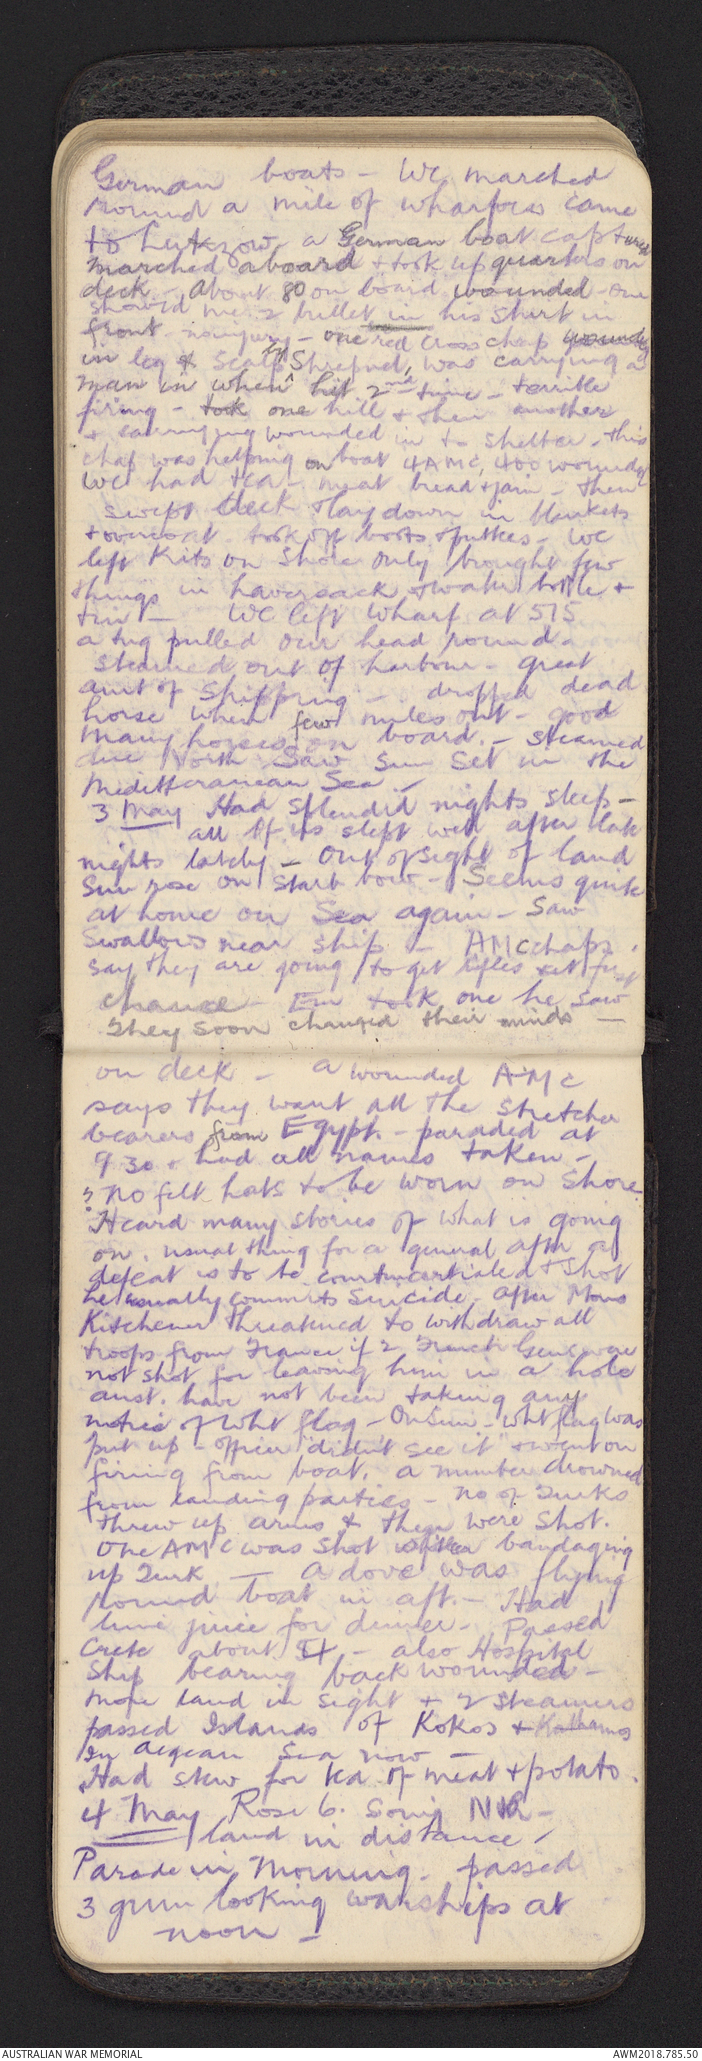 German boats - We marched
round a mile of wharfees came
to Lutzow a German boat captured
marched aboard & took up quarters on
deck - About 80 on board wounded - one
showed me 2 bullet in his shirt in
front - no injury - one red cross chap wounded
in leg & scalp by Shrapnel, was carrying a
man in when hit 2nd time - terrible
firing - took one hill & then another
& carrying wounded in to shelter - this
chap was helping on boat 4 AMC, 400 wounded
We had tea - meat bread & jam - then
swept deck & lay down in blankets
& overcoat took off boots & puttees - We
left Kits on shore only brought few
things in haversack & water bottle &
tin - We left Wharf at 515
a tug pulled our head round -
steamed out of harbour - great
amt of shipping - dropped dead
horse when few miles out - good
many horses on board - steamed
due North Saw Sun Set in the
Mediterranean Sea -
3 May Had splendid nights sleep -
all of us slept well after late
nights lately - Out of sight of land
Sun rose on Starb. bow - Seems quite
at home on Sea again - Saw
Swallows near ship - AMC chaps
say they are going to get rifles at first
chance - Em took one he saw
They soon changed their minds -
on deck - a wounded AMC
says they want all the stretcher
bearers from Egypt. - paraded at
9 30 & had all names taken -
? no felt hats to be worn on shore
Heard many stories of what is going
on. usual thing for a general after a
defeat is to be courtmartialed & shot
he usually commits Suicide. after Mons
Kitchener threatened to withdraw all
troops from France if 2 French Gens were
not shot for leaving him in a hole
aust. have not been taking any
notice of Wht flag - On Sun - wht flag was
put up - officer "didn't see it" & went on
firing from boat. a number drowned
from landing parties - no of Turks
threw up arms & then were shot.
One AMC was shot bandaging
up Turk - A dove was flying
round boat in aft. - Had
lime juice for dinner - Passed
Crete about - also Hospital
Ship bearing back wounded -
more land in sight + 2 steamers
passed Islands of Kokos +
In Aegean Sea now -
Had stew for tea of meat & potato.
4 May Rose 6. Going
land in distance -
Parade in Morning - passed
3 grim looking warships at
noon -
AUSTRALIAN WAR MEMORIAL
AWM2018.785.50